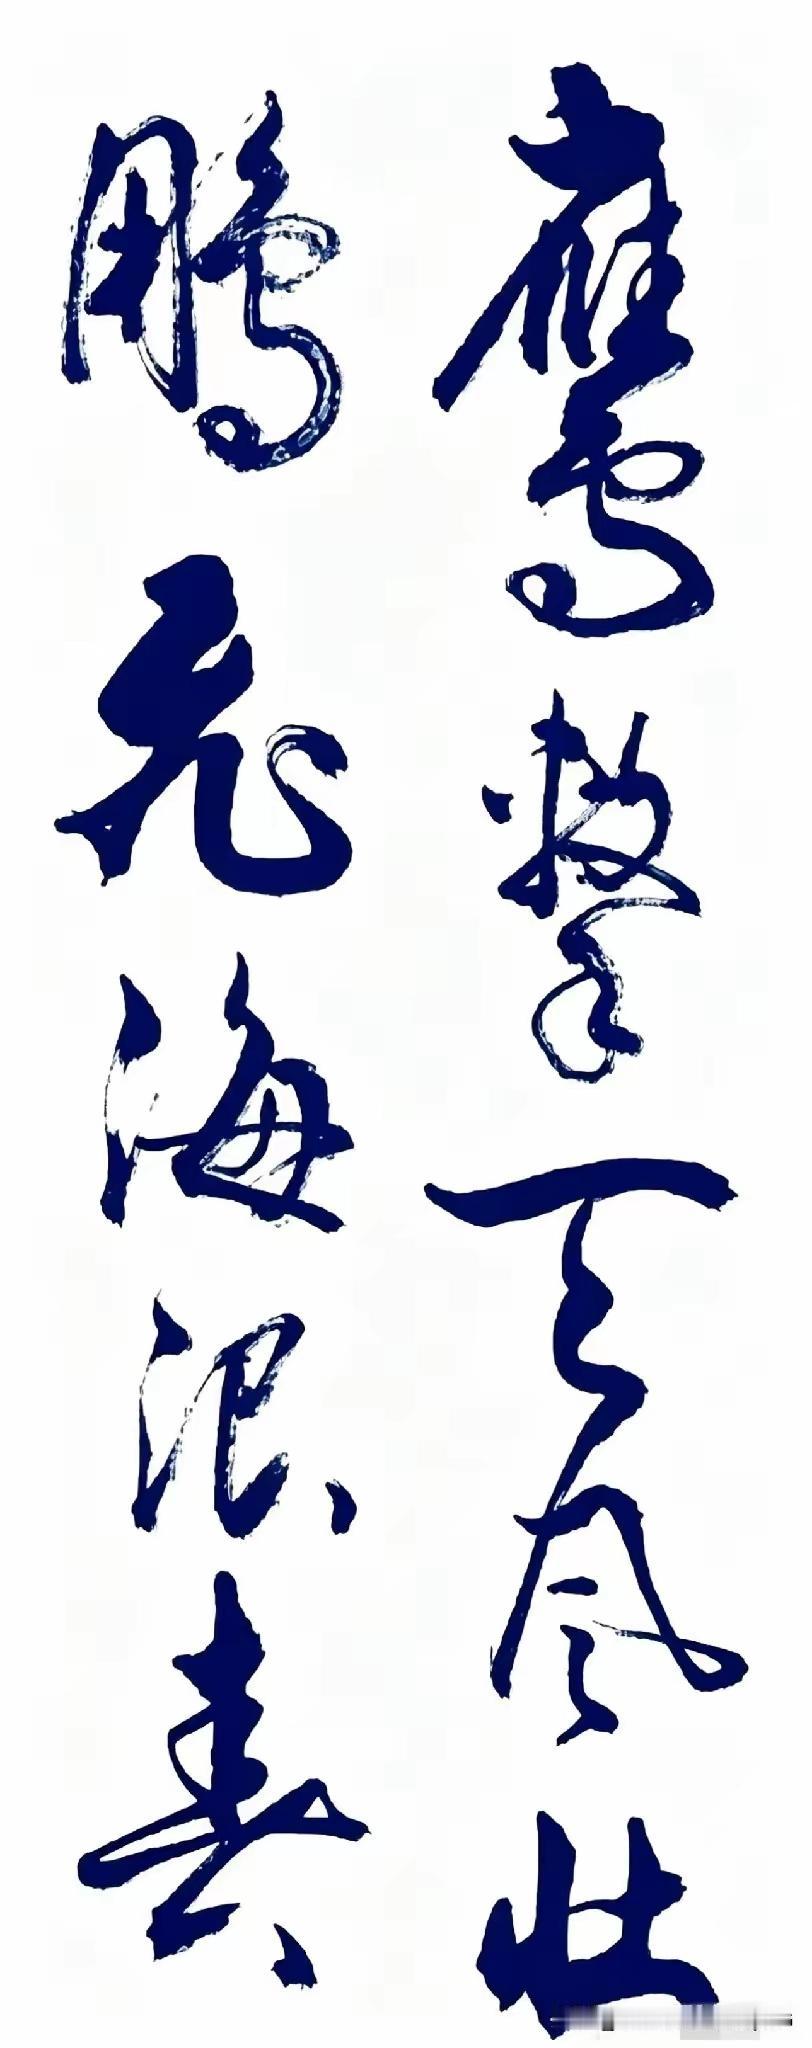 鹰击天风壮
鹏飞海浪春